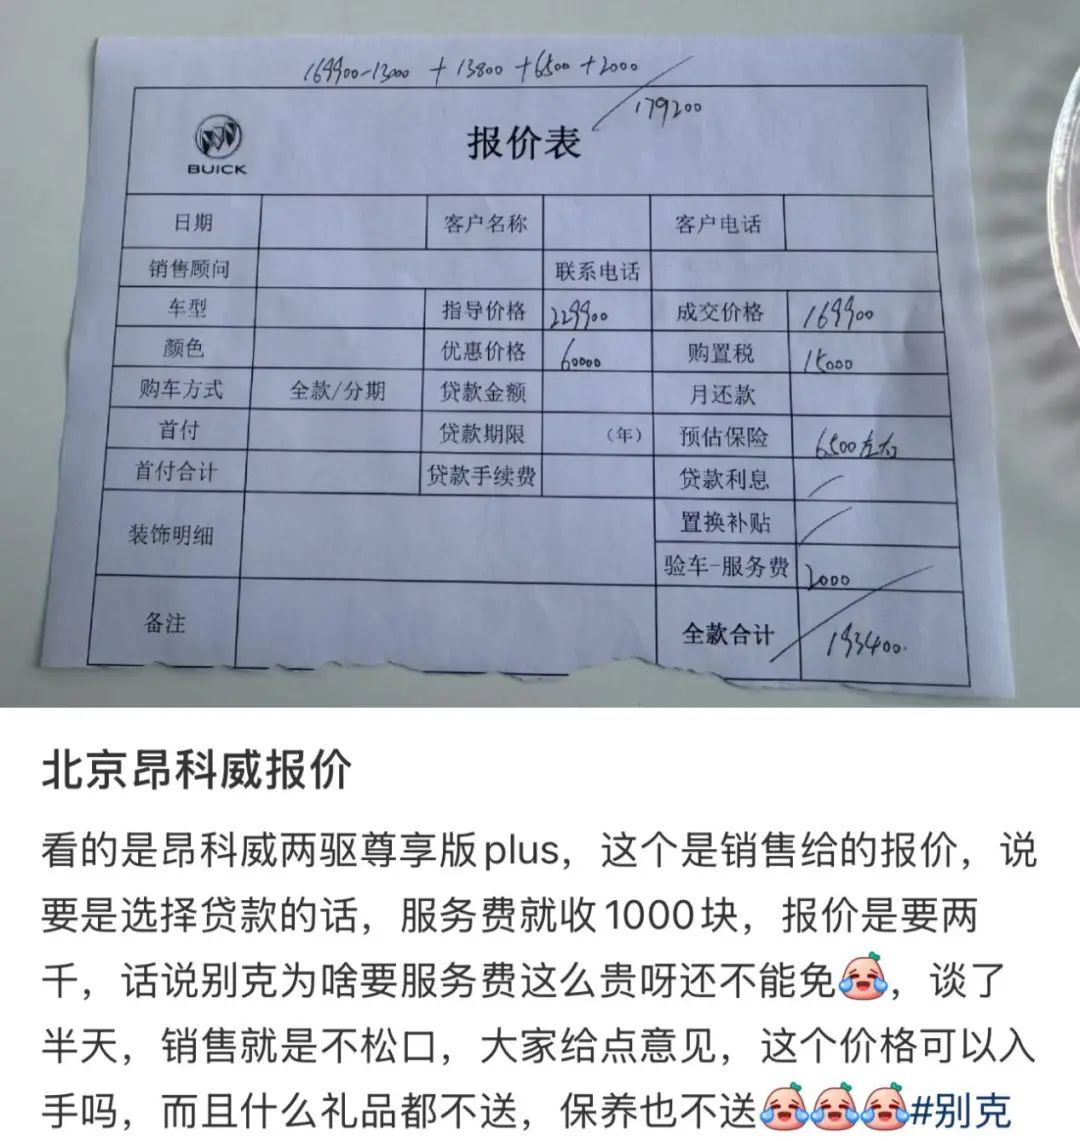 169900-13000 + 13800 +6500 +2000
179200
BUICK
报价表
日期 客户名称 客户电话
销售顾问 联系电话
车型 指导价格 229900 成交价格 169900
颜色 优惠价格 60000 购置税 15000
购车方式 全款/分期 贷款金额 月还款
首付 贷款期限 （年） 预估保险 6500左右
首付合计 贷款手续费 贷款利息
装饰明细 置换补贴
验车-服务费 2000
备注 全款合计 193400.
北京昂科威报价
看的是昂科威两驱尊享版plus，这个是销售给的报价，说
要是选择贷款的话，服务费就收1000块，报价是要两
千，话说别克为啥要服务费这么贵呀还不能免，谈了
半天，销售就是不松口，大家给点意见，这个价格可以入
手吗，而且什么礼品都不送，保养也不送#别克